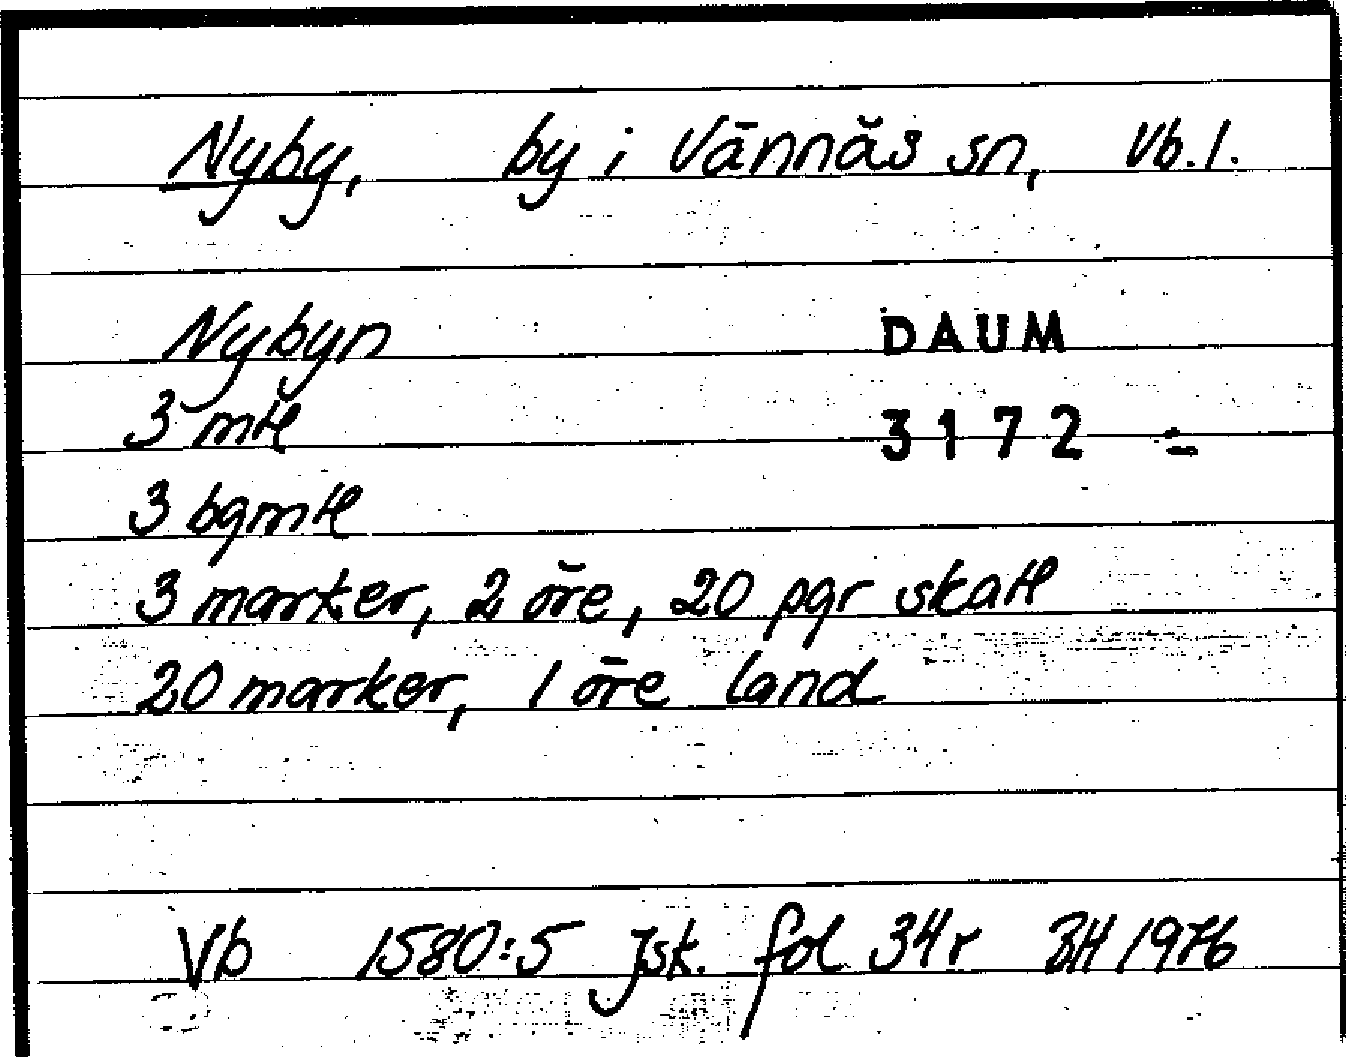 Nyby, by i Vännäs sn, Vb. l.
Nybyn DAUM
3 mtl 3172
3 bgmtl
3 marker, 2 öre, 20 pgr skatt
20 marker, 1 öre land
Vb 1580:5 Jsk. fol 34r BH 1976